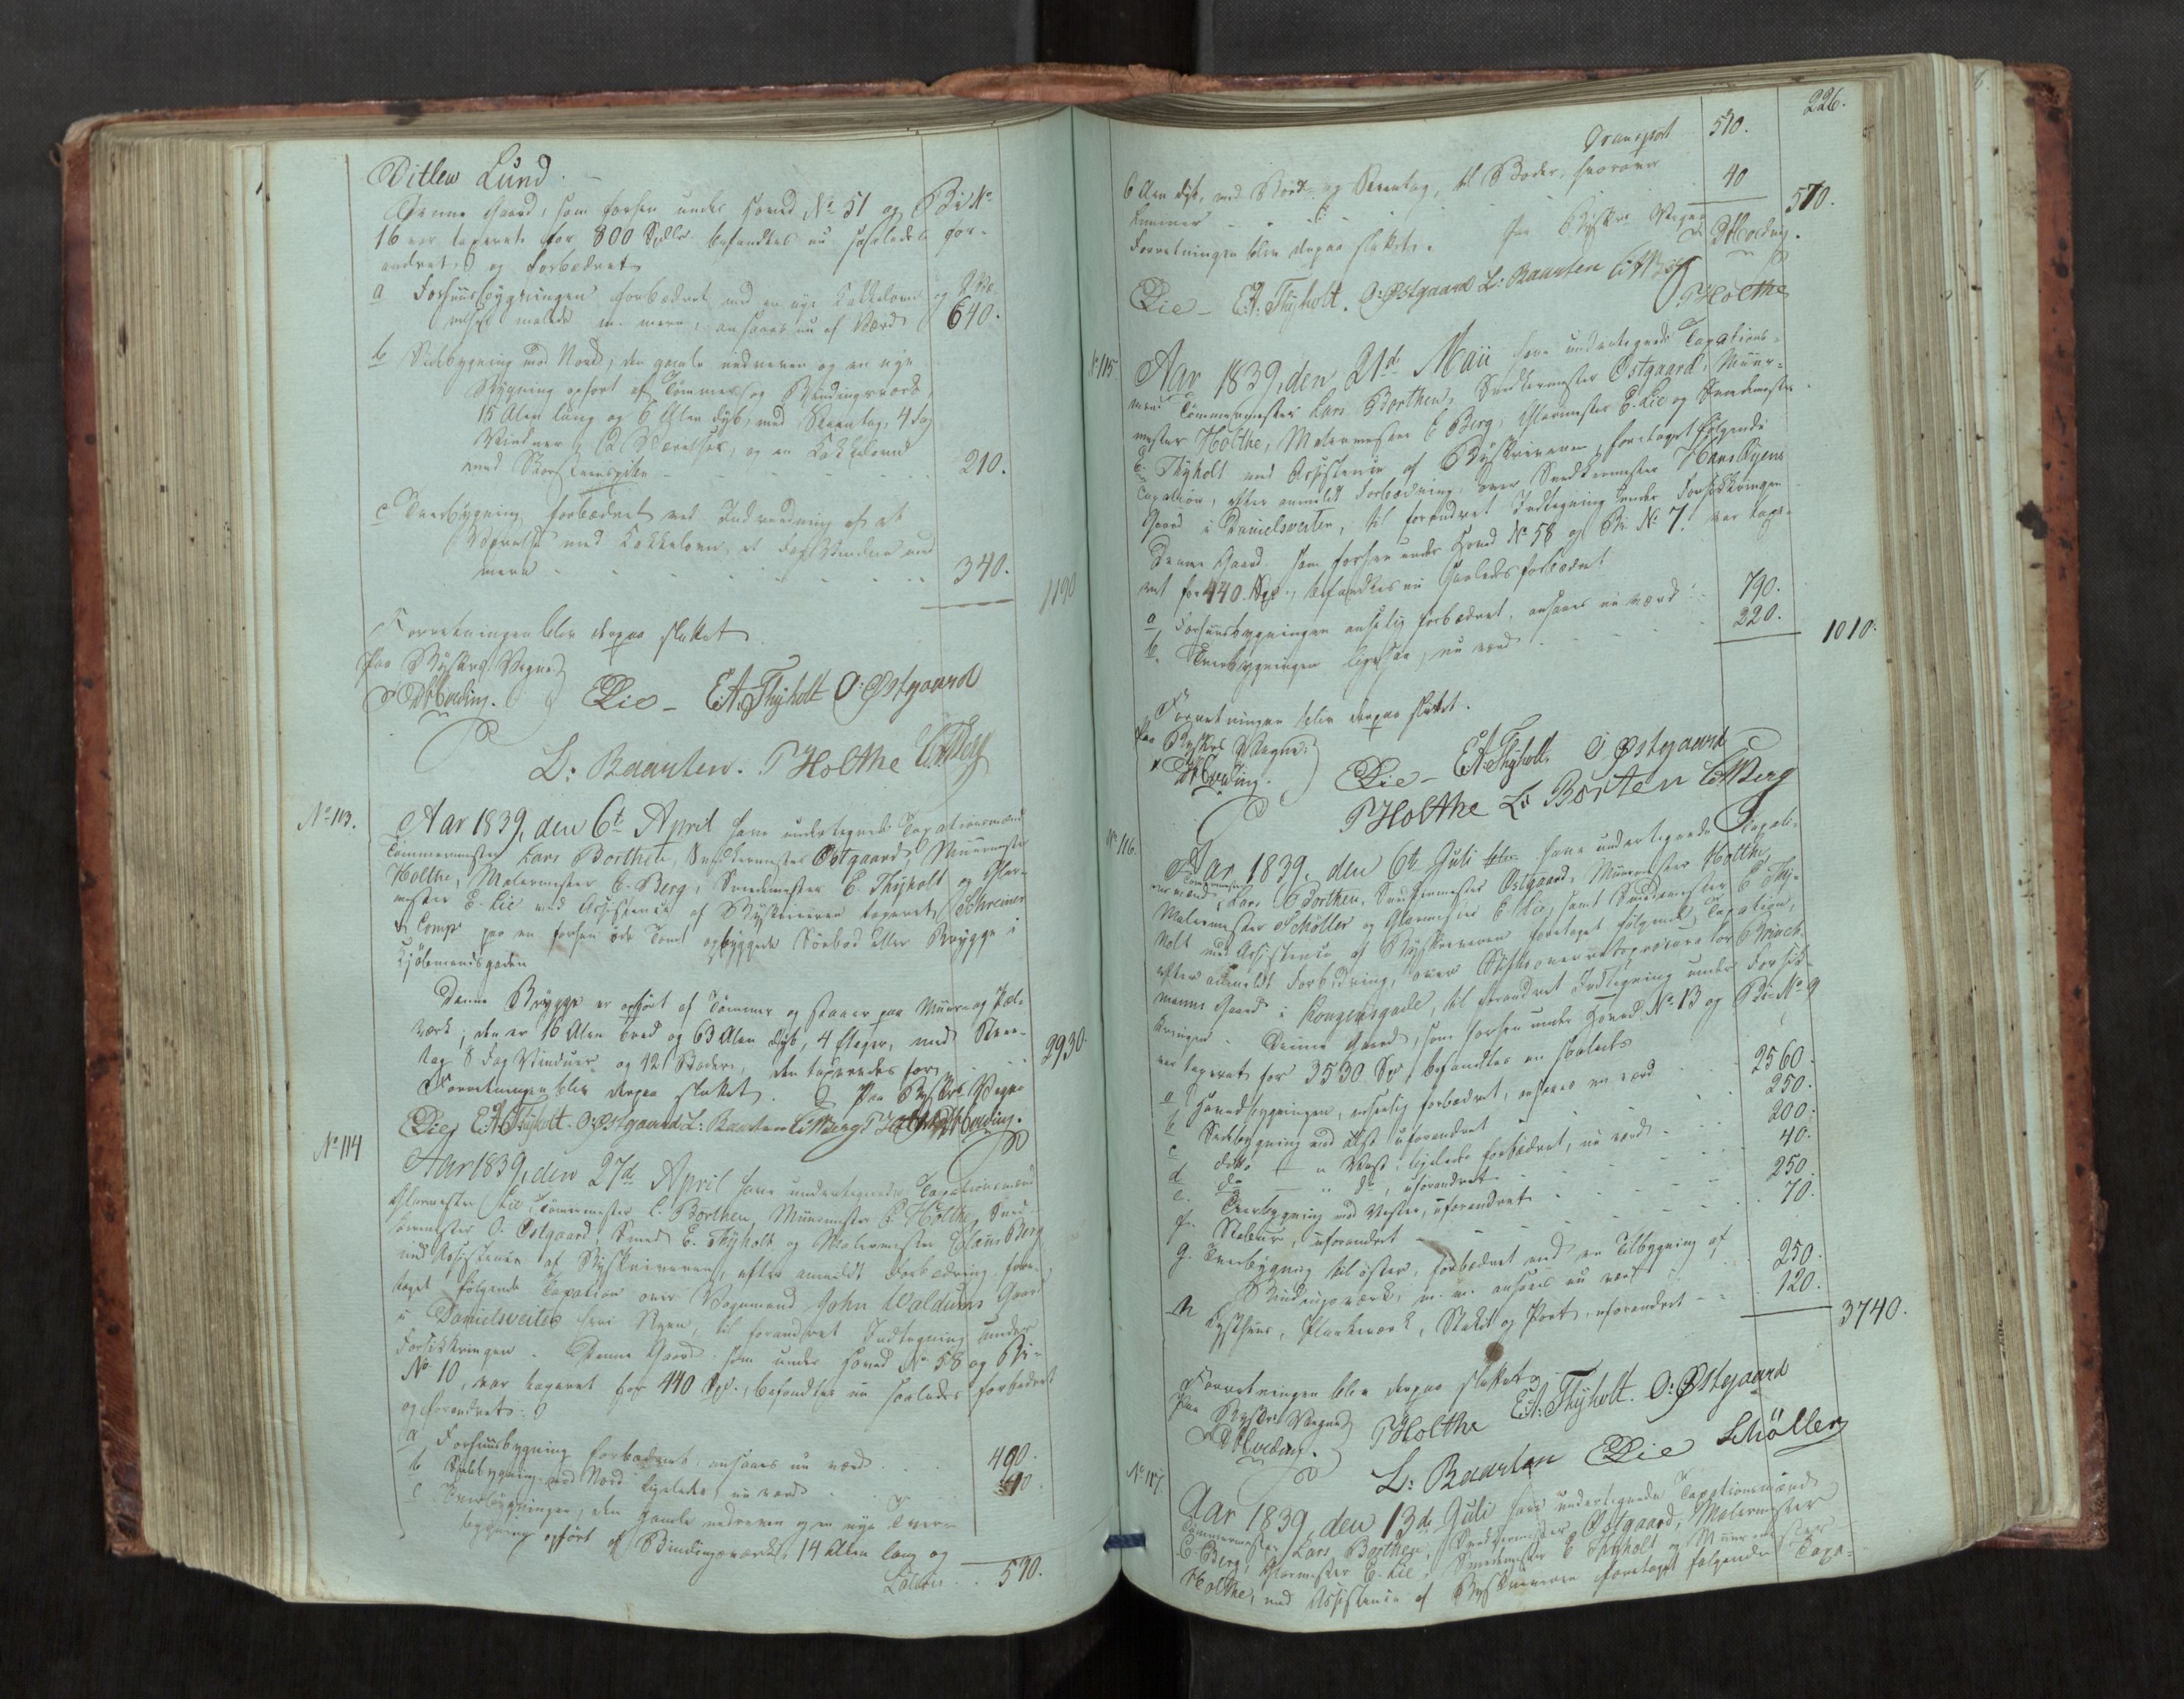 Ditlew Lund.
Denne Gaard, som forhen under Hoved No 51 og Bi No
16 var taxeret for 800 Spdlr. befandtes nu saaledes for-
andret og forbedret
a Forhuusbygningen forbedret med en nye Kakkelovn og
malede m. mere, ansaaes nu af Værd 640.
b Sidebygning mod Nord, den gamle nedreven og en nye
Bygning opført af Tømmer og Bindingsværk,
15 Alen lang og 6 Alen dyb, med Steentag, 4 Fag
Vinduer, 2 Værelser, og en Kakkelovn
med Skorsteenspibe 210.
c Tverbygning forbedret med Indredning af et
Værelse med Kakkelovn, et Fag Vinduer med
mere 340.
1190
Forretningen blev derpaa sluttet
Paa Byskr. Vegne
Hveding. E Lie - E. A. Thyholt O: Østgaard
L: Baarten. P Holthe C. Berg
No 113. Aar 1839, den 6te April have undertegnede Taxationsmænd
Tømmermester Lars Borthen, Snedkermester Østgaard, Muurmester
Holthe, Malermester C. Berg, Smedemester E. Thyholt og Glar-
mester E. Lie med Assistence af Byskriveren taxeret Schreiner
& Comp: paa en forhen øde Tomt opbyggede Søebod eller Brygge i
Kjøbmandsgaden
Denne Brygge er opført af Tømmer og staaer paa Muur og Pæl-
værk; den er 16 Alen bred og 63 Alen dyb, 4 Etager, med Steen-
tag 8 Fag Vinduer og 12 Boder, den taxeredes for 2930.
Forretningen blev derpaa sluttet. Paa Byskr. Vegne
E Lie, E. A. Thyholt. O: Østgaard L: Baarten C Berg. P Holthe Hveding.
No 114 Aar 1839, den 27de April have undertegnede Taxationsmænd
Glarmester Lie, Tømmermester L. Borthen, Muurmester P. Holthe, Sned-
kermester O. Østgaard, Smed E. Thyholt og Malermester Claus Berg
med Assistence af Byskriveren, efter anmeldt Forbedring, fore-
taget følgende Taxation over Vognmand John Waldums Gaard
i Danielsveiten heri Byen, til forandret Indtegning under
Forsikkringen. Denne Gaard, som under Hoved No 58 og Bi-
No 10, var taxeret for 440 Spd., befandtes nu saaledes forbedret
og forandret:
a Forhuusbygning forbedret, ansaaes nu værd 490.
b Sidebygning mod Nord ligeledes, nu værd
c Tverbygningen, den gamle nedreven og en nye Tver-
bygning opført af Bindingsværk, 14 Alen lang og
Latus 530.
226.
Transport 530.
6 Alen dyb, med Bord- og Steentag, til Boder, hvorover
Kammer 40
570.
Forretningen blev derpaa sluttet. Paa Byskr. Vegne
Hveding.
E Lie - E. A. Thyholt. O: Østgaard L: Baarten C. Berg
P Holthe
No 115. Aar 1839, den 21de Maii have undertegnede Taxations-
mænd Tømmermester Lars Borthen, Snedkermester Østgaard, Muur-
mester Holthe, Malermester C Berg, Glarmester E. Lie og Smedemester
E. Thyholt med Assistence af Byskriveren, foretaget følgende
Taxation, efter anmeldt Forbedring, over Snedkermester Hans Gjens
Gaard i Danielsveiten, til forandret Indtegning under Forsikkringen
Denne Gaard, som forhen under Hoved No 58 og Bi No 7. var taxe-
ret for 440. Spd., befandtes nu saaledes forbedret
a Forhuusbygningen anseelig forbedret, ansaaes nu værd 790.
b. Tverbygningen ligesaa, nu værd 220.
1010.
Forretningen blev derpaa sluttet.
Paa Byskr. Vegne
Hveding. E Lie - E. A. Thyholt. O Østgaard
P Holthe L: Borten C. Berg
No 116. Aar 1839, den 6te Juli have undertegnede Taxati-
onsmænd Tømmermester Lars Borthen, Snedkermester Østgaard, Muurmester Holthe,
Malermester Schøller og Glarmester E Lie, samt Smedemester E Thy-
holt med Assistence af Byskriveren foretaget følgende Taxation,
efter anmeldt Forbedring, over Stiftsoverretsprocurator Brinch-
manns Gaard i Kongensgade, til forandret Indtegning under Forsik-
kringen. Denne Gaard, som forhen under Hoved No 13 og Bi-No 9
var taxeret for 3530 Sp., befandtes nu saaledes
a Hovedbygningen, anseelig forbedret, ansaaes nu værd 2560.
b Sidebygning mod Øst uforandret 250.
c ditto - " Vest, ligeledes forbedret, nu værd 200.
d do - " do, uforandret 40.
e. Tverbygning mod Vester, uforandret 250.
f. Stabuur, uforandret 70.
g. Tverbygning til Øster, forbedret med en Tilbygning af
Bindingsværk, m. m. ansaaes nu værd 250.
h Lysthuus, Plankeværk, Stakit og Port, uforandret 120.
3740.
Forretningen blev derpaa sluttet
Paa Byskr. Vegne
Hveding. P Holthe E. A. Thyholt. O: Østgaard
L: Baarten E Lie Schøller
No 117. Aar 1839, den 13de Juli have undertegnede Taxationsmænd
Tømmermester Lars Borthen, Snedkermester Østgaard, Malermester
C. Berg, Glarmester E. Lie, Smedemester E Thyholt og Muurmester
Holthe, med Assistence af Byskriveren foretaget følgende Taxa-